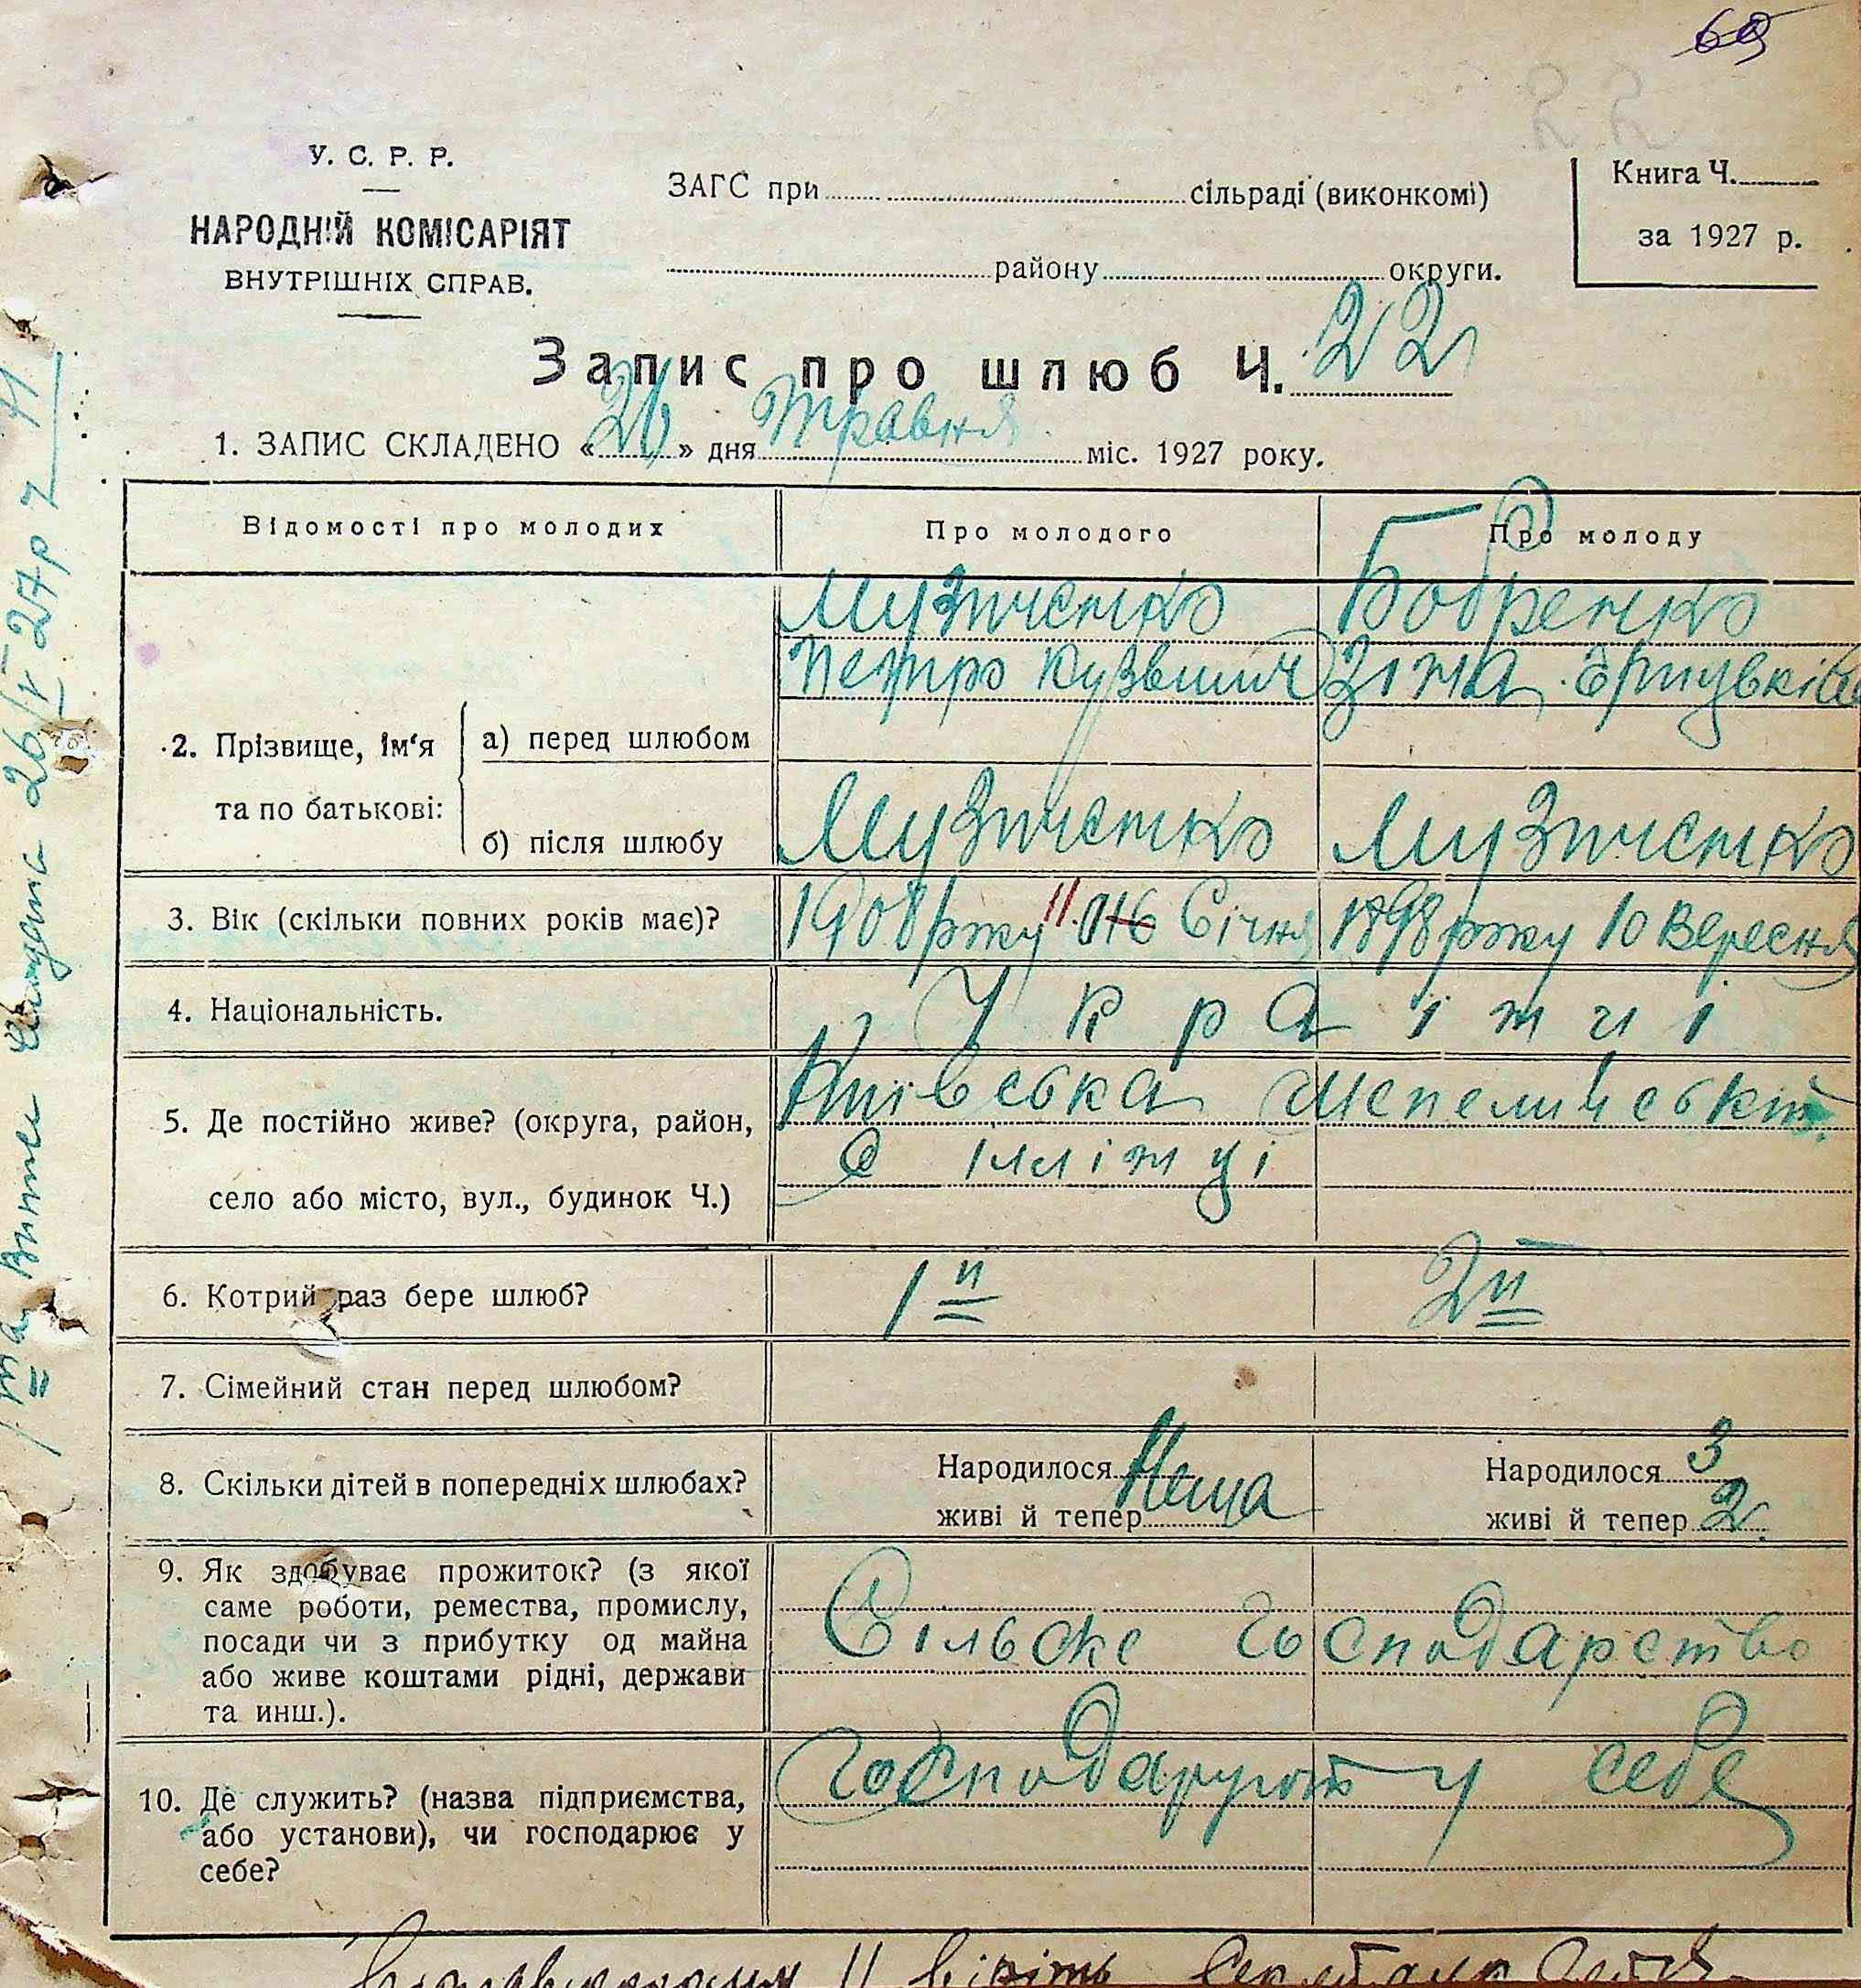 69
У. С. Р. Р.
НАРОДНІЙ КОМІСАРІЯТ
ВНУТРІШНІХ СПРАВ.
ЗАГС при сільраді (виконкомі)
району округи.
Книга Ч.
за 1927 р.
Запис про шлюб Ч. 22
1. ЗАПИС СКЛАДЕНО «26» дня Травня міс. 1927 року.
Відомості про молодих Про молодого Про молоду
2. Прізвище, ім'я та по батькові:
а) перед шлюбом
Музиченко Бобренко
Петро Кузьмич Зіна
б) після шлюбу Музиченко Музиченко
3. Вік (скільки повних років має)? 1908 року 11 Січня 1898 року 10 Вересня
4. Національність. Українці
5. Де постійно живе? (округа, район,
село або місто, вул., будинок Ч.)
Київська Шепелицький
с Іллінці
6. Котрий раз бере шлюб? 1й 2й
7. Сімейний стан перед шлюбом?
8. Скільки дітей в попередніх шлюбах? Народилося Народилося 3
живі й тепер Нема живі й тепер 2
9. Як здобуває прожиток? (з якої
саме роботи, ремества, промислу,
посади чи з прибутку од майна
або живе коштами рідні, держави
та инш.).
Сільське господарство
10. Де служить? (назва підприємства,
або установи), чи господарює у
себе?
Господарують у себе